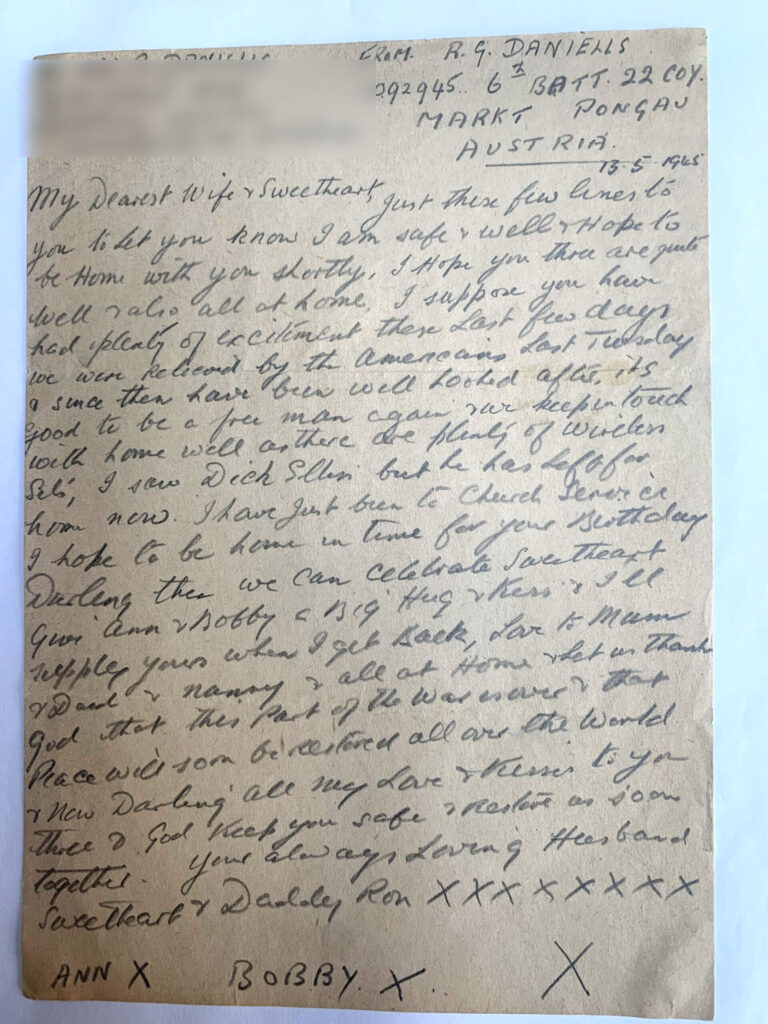 FROM. R. G. DANIELLS
292945. 6th BATT. 22 COY.
MARKT PONGAU
AUSTRIA.
13-5-1945
My Dearest Wife & Sweetheart, Just these few lines to
you to let you know I am safe & well & Hope to
be Home with you shortly, I Hope you three are quite
well & also all at home, I suppose you have
had plenty of excitiment these Last few days
we were relieved by the Americains Last Tuesday
& since then have been well looked after, its
good to be a free man again & we keep in touch
with home well as there are plenty of wireless
Sets, I saw Dick but he has Left for
home now. I have just been to Church Service
I hope to be home in time for your Birthday
Darling then we can celebrate Sweetheart
Give Ann & Bobby a Big Hug & Kiss & I'll
supply yours when I get Back, Love to Mum
& Dad & Nanny & all at Home & Let us thank
God that this Part of the War is over & that
Peace will soon be restored all over the World
& Now Darling all my Love & Kisses to you
three & God Keep you safe & restore us soon
together. Your always Loving Husband
Sweetheart & Daddy Ron X X X X X X X X
ANN X BOBBY. X. X